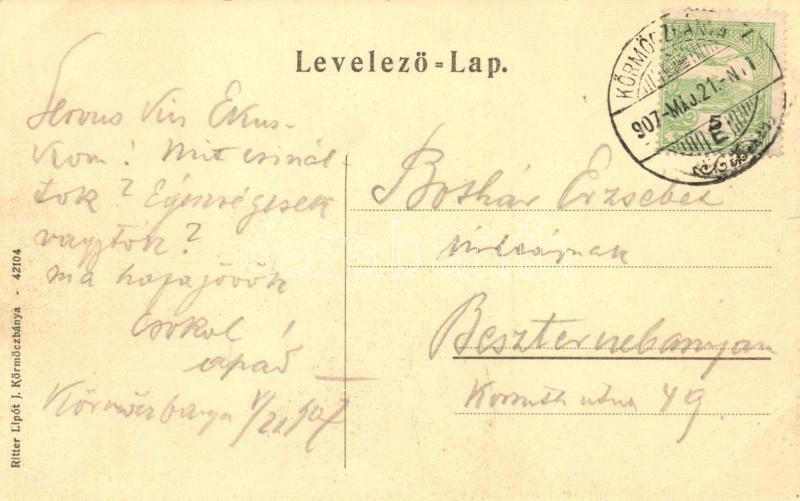 Levelező=Lap.
KÖRMÖCZBÁNYA
907 MÁJ. 21.-N. 1
5
E
Servus Kis Erzus-
kom! Mit csinál
tok? Egészségesek
vagytok?
ma haza jövök
Csokol
apád
Körmöczbanya V/21 907
Bothár Erzsebet
urleánynak
Beszterczebanyan
Kossuth utcza 49.
Ritter Lipót J. Körmöczbánya - 42104
darabanth